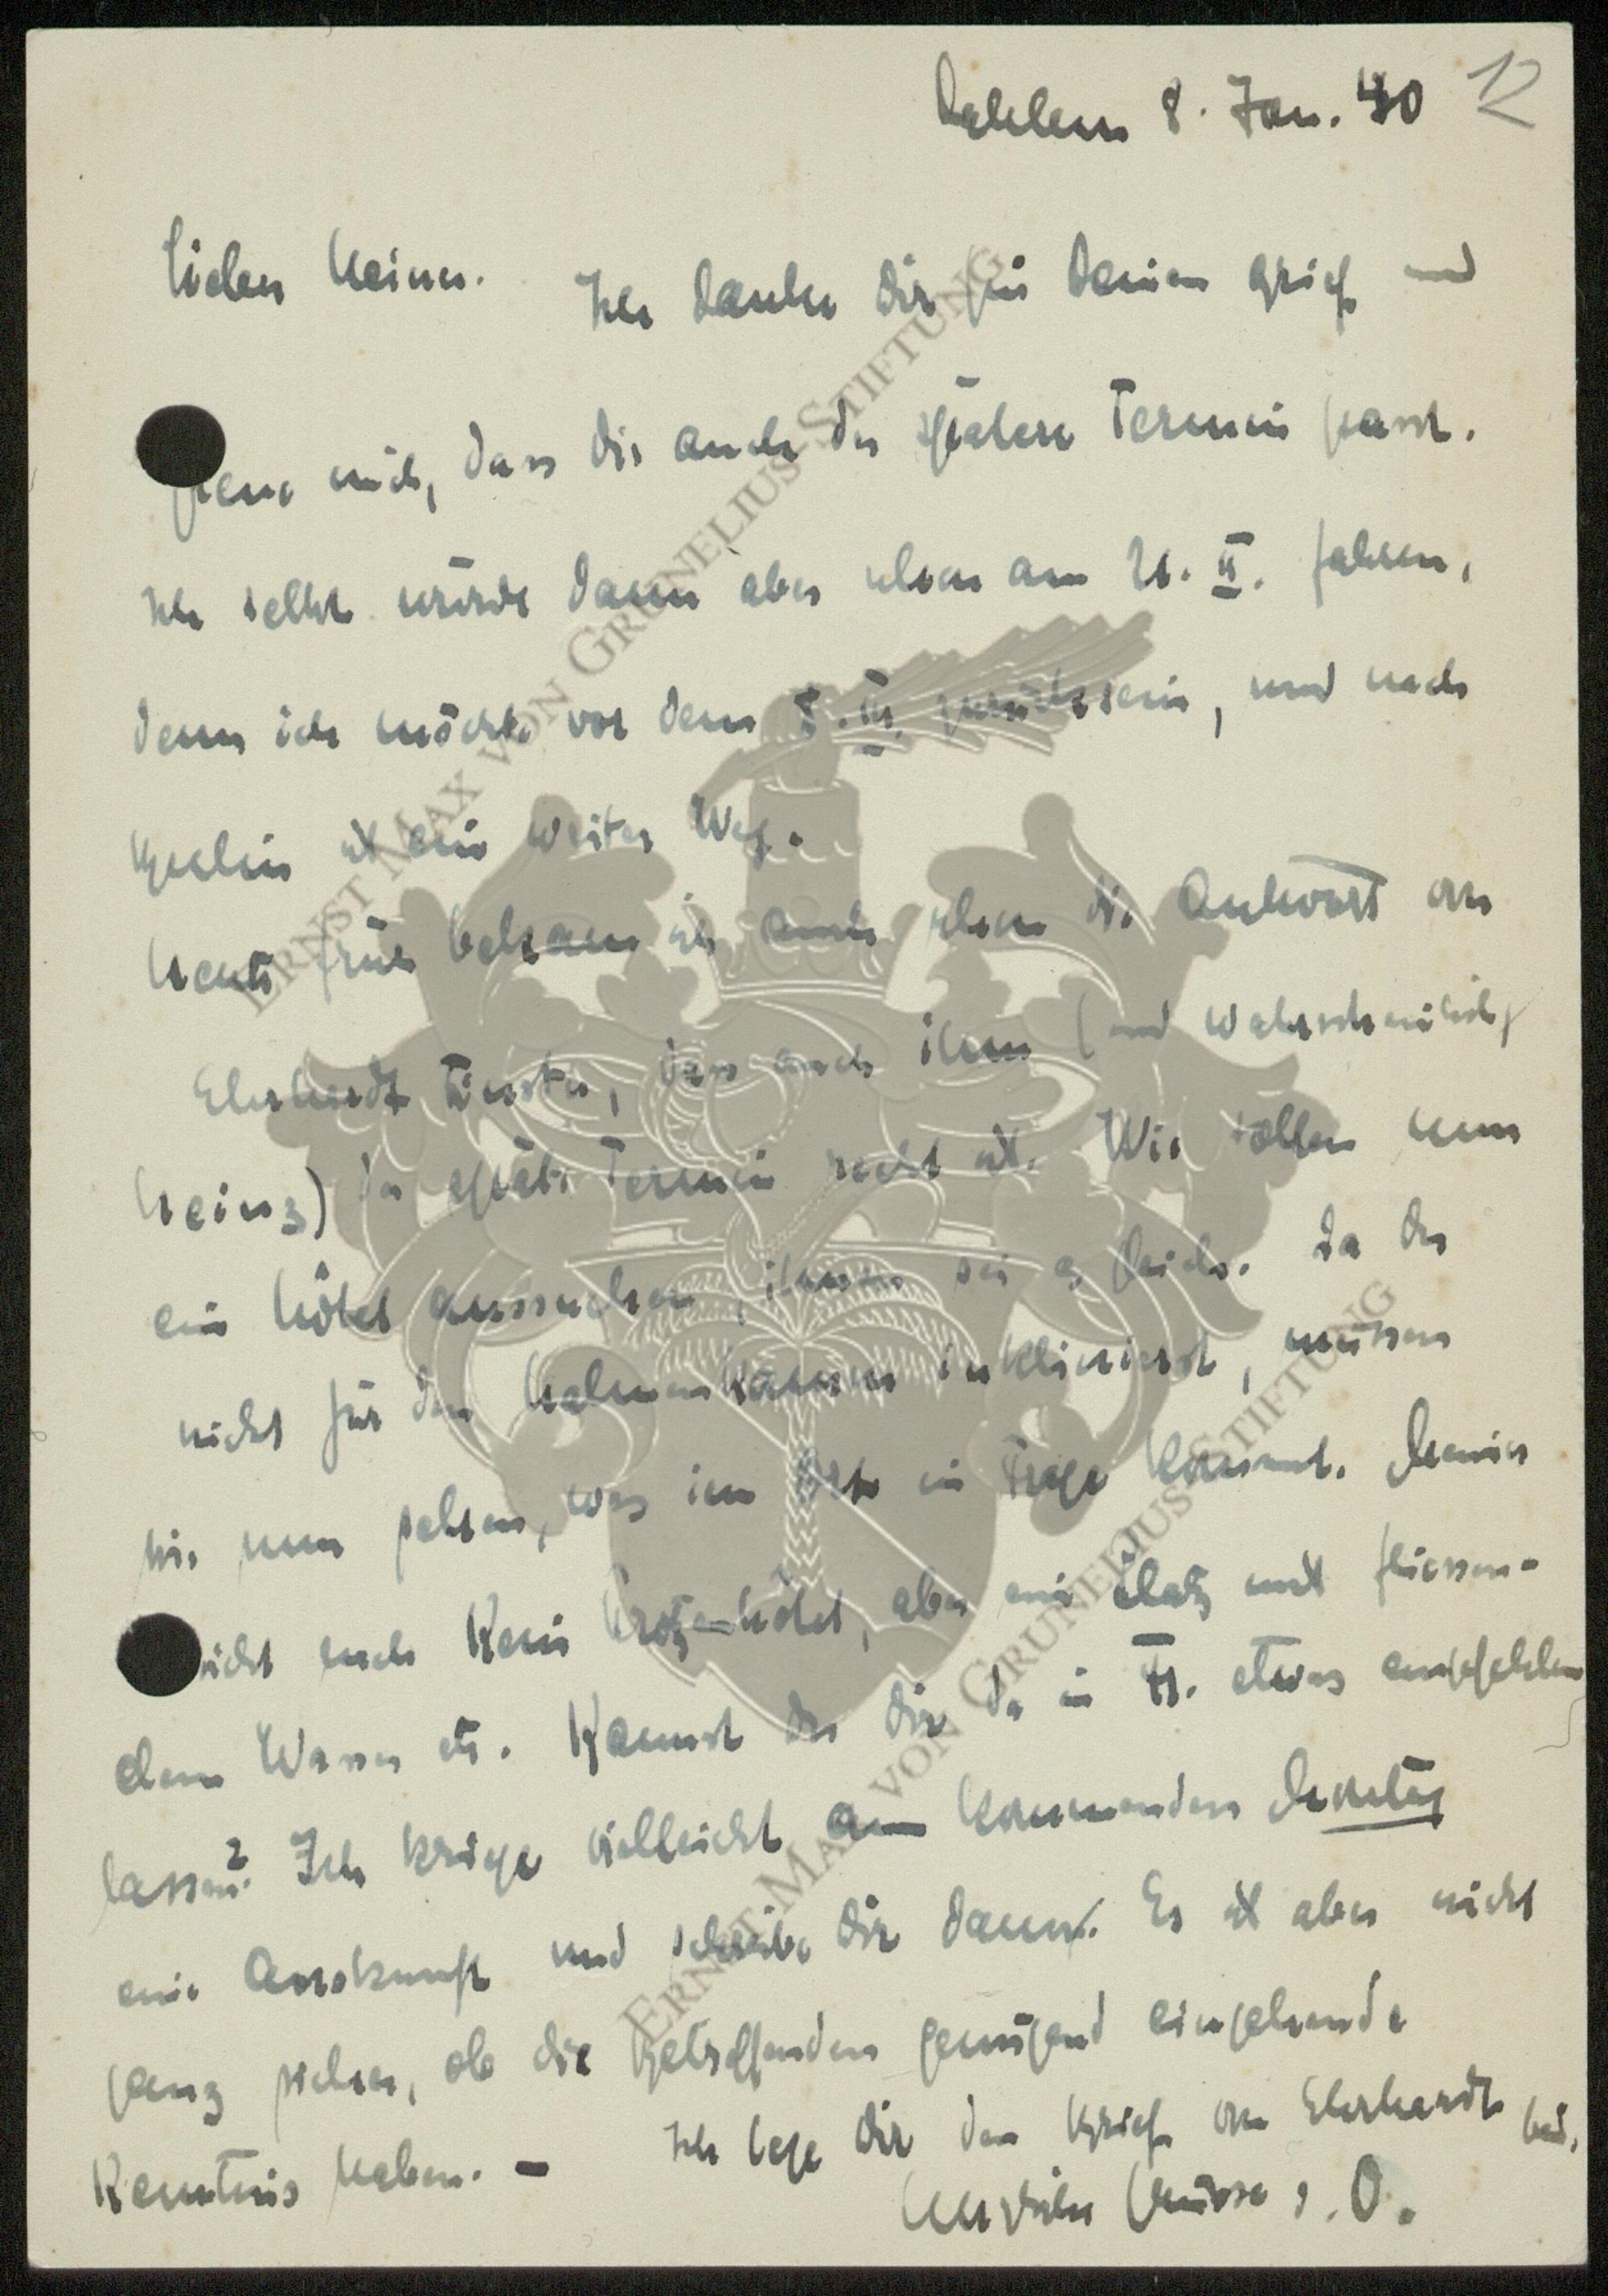 Dahlem 8. Jan. 40 12
Lieber Heiner. Ich danke dir für Deinen Brief und
freue mich, dass dir auch der spätere Termin passt.
Ich selbst würde dann aber schon am 21. II. fahren,
denn ich möchte vor dem 5. III. zurück sein, und nach
Berlin ist ein weiter Weg.
Heute früh bekam ich auch schon die Antwort von
Eberhardt, dass auch ihm (und wahrscheinlich
Heinz) der späte Termin recht ist. Wir sollen nun
ein Hôtel aussuchen, ihnen sei es gleich. Da du
nicht für den Hahnenkamm inklinierst, müssen
wir nun sehen, was im Orte in Frage kommt.
nicht kein Protz-Hôtel, aber mit fliessen-
dem Wasser etc. Kannst du dir da in Ff. etwas empfehlen
lassen? Ich kriege vielleicht am kommenden
eine Auskunft und schreibe dir dann. Es ist aber nicht
ganz sicher, ob die Betreffenden genügend eingehende
Kenntnis haben. – Ich lege dir den Brief von Eberhardt bei.
Herzliche Grüsse s. O.
ERNST MAX VON GRUNELIUS-STIFTUNG
ERNST MAX VON GRUNELIUS-STIFTUNG